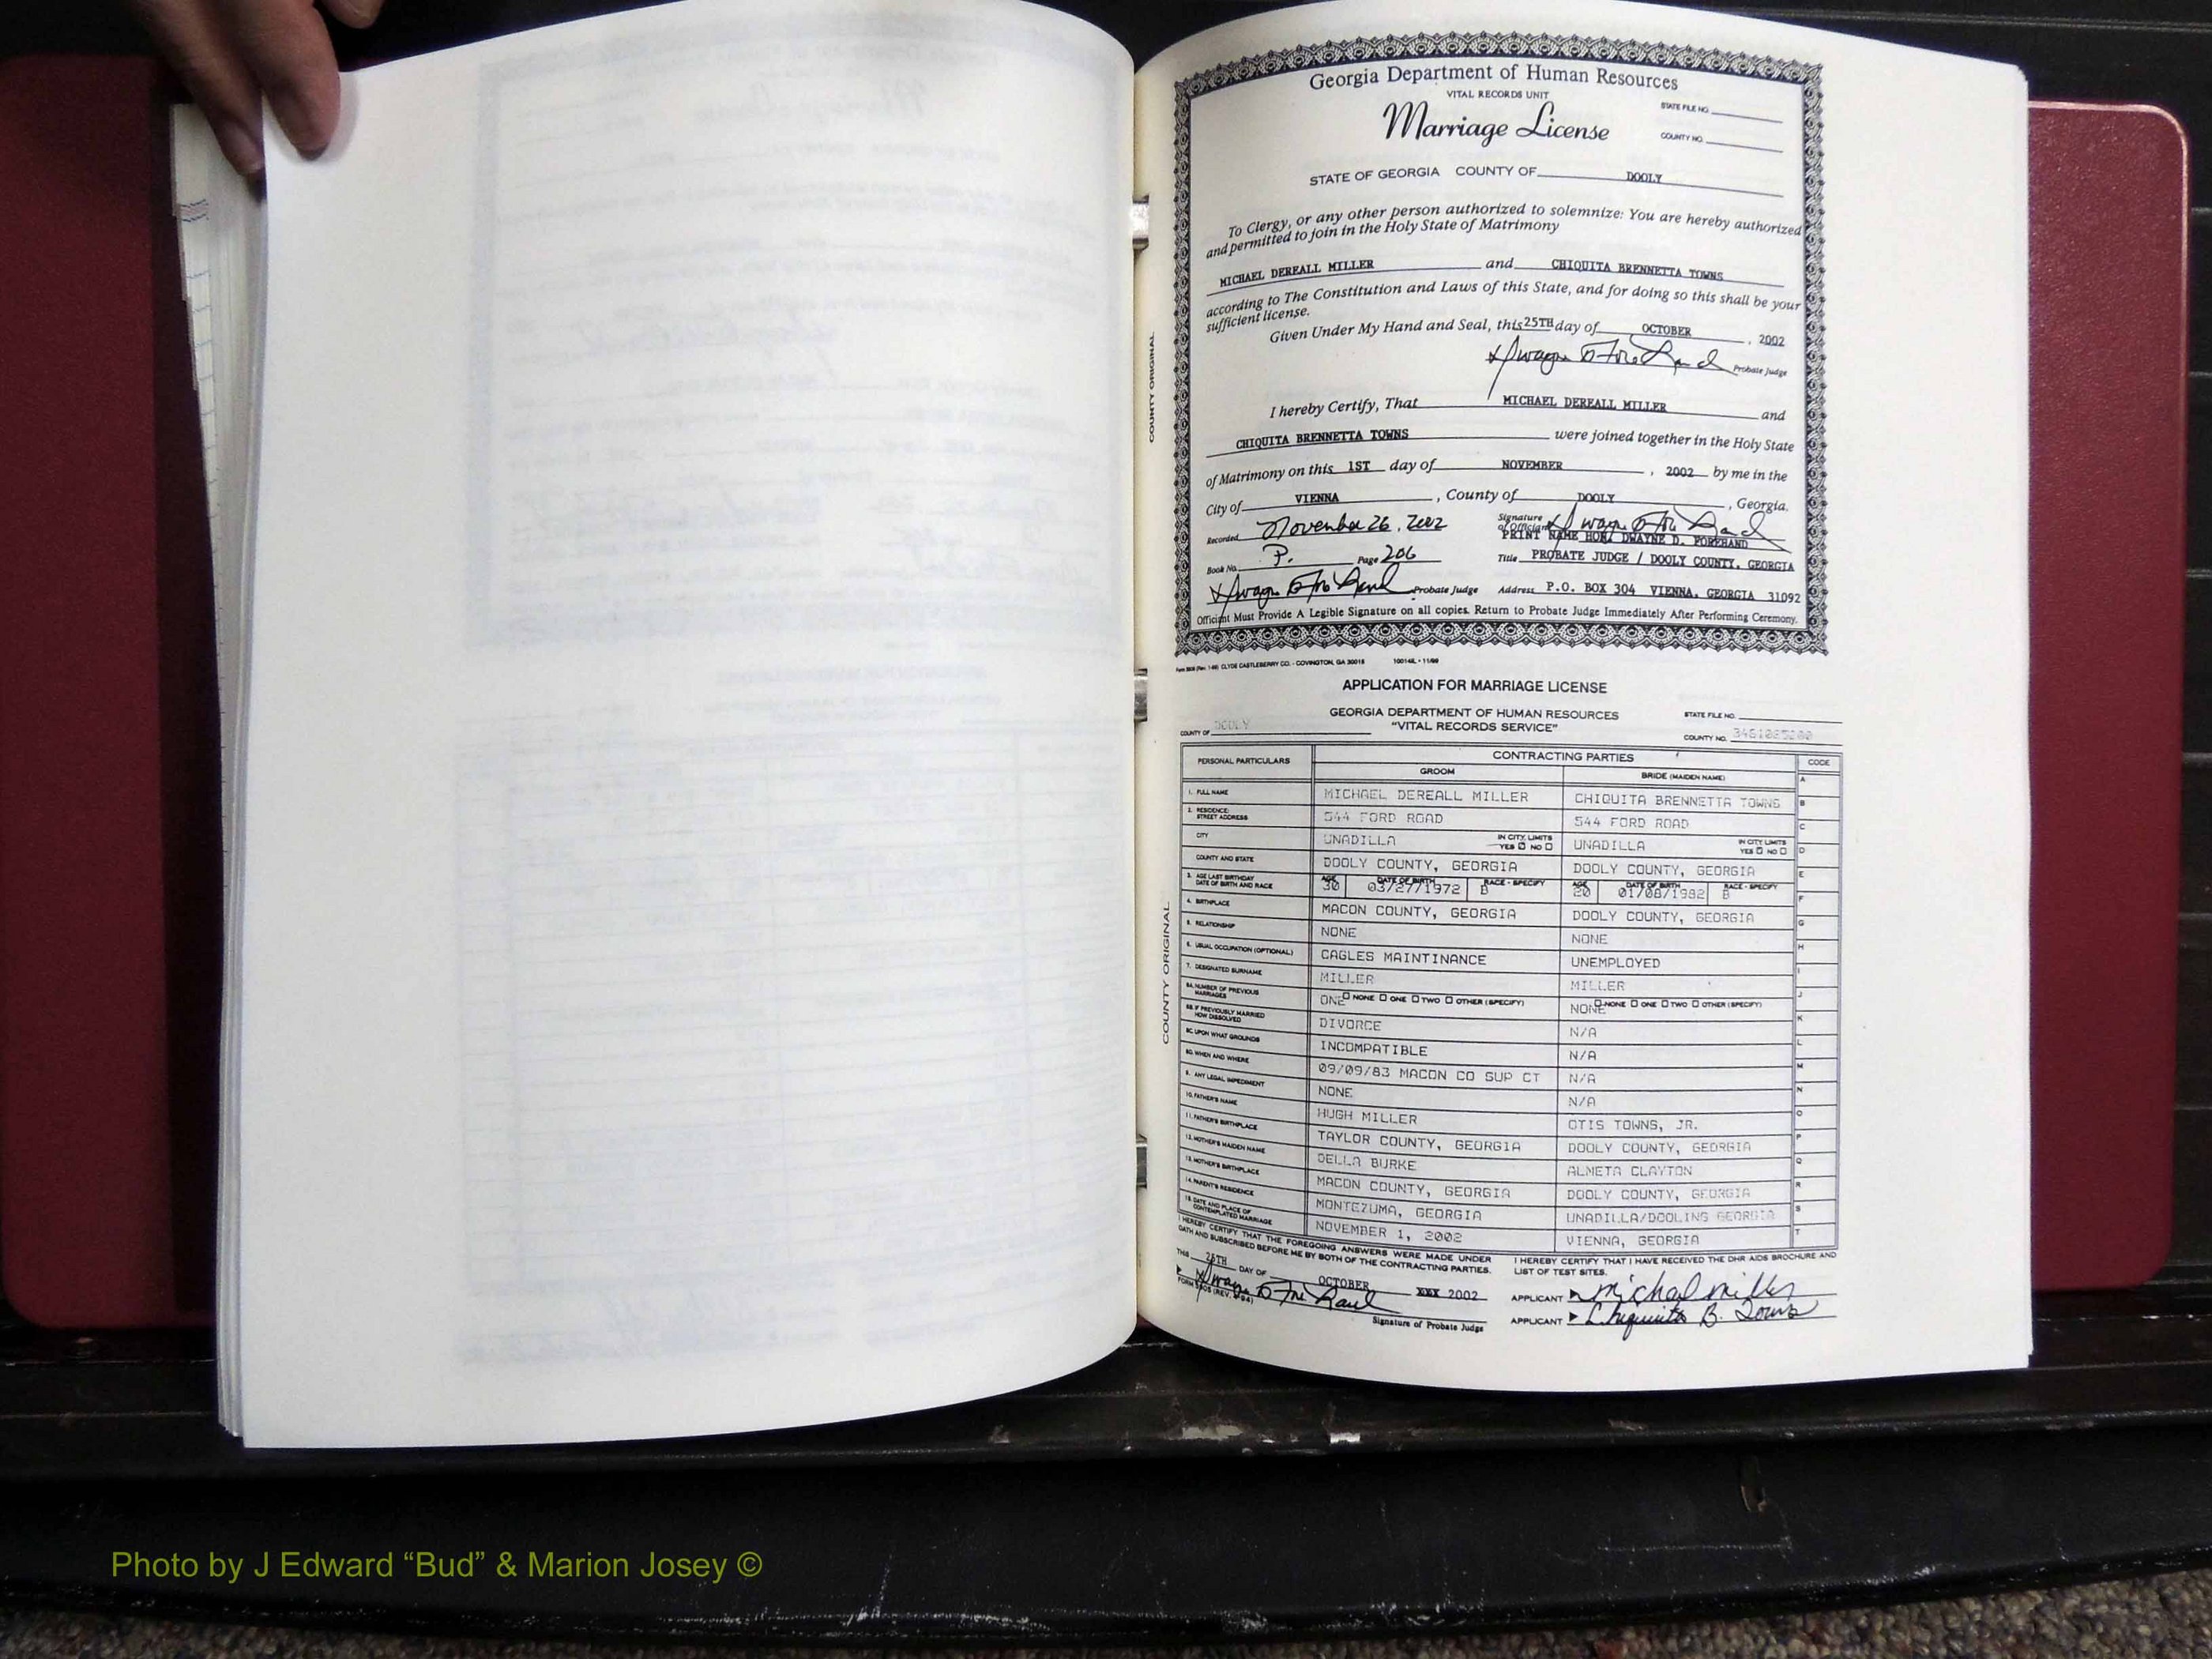 Georgia Department of Human Resources
VITAL RECORDS UNIT
Marriage License
STATE FILE NO.
COUNTY NO.
STATE OF GEORGIA COUNTY OF DOOLY
To Clergy, or any other person authorized to solemnize: You are hereby authorized
and permitted to join in the Holy State of Matrimony
MICHAEL DEREALL MILLER and CHIQUITA BRENNETTA TOWNS
according to The Constitution and Laws of this State, and for doing so this shall be your
sufficient license.
Given Under My Hand and Seal, this 25TH day of OCTOBER , 2002
Probate Judge
I hereby Certify, That MICHAEL DEREALL MILLER and
CHIQUITA BRENNETTA TOWNS were joined together in the Holy State
of Matrimony on this 1ST day of NOVEMBER , 2002 by me in the
City of VIENNA , County of DOOLY , Georgia.
Recorded November 26, 2002 Signature of Officiant
PRINT NAME HON. DWAYNE D. FOREHAND
Book No. P. Page 206 Title PROBATE JUDGE / DOOLY COUNTY, GEORGIA
Probate Judge Address P.O. BOX 304 VIENNA, GEORGIA 31092
Officiant Must Provide A Legible Signature on all copies. Return to Probate Judge Immediately After Performing Ceremony.
CLYDE CASTLEBERRY CO. - COVINGTON, GA 30015 10014L • 11/99
COUNTY ORIGINAL
APPLICATION FOR MARRIAGE LICENSE
GEORGIA DEPARTMENT OF HUMAN RESOURCES STATE FILE NO.
"VITAL RECORDS SERVICE"
COUNTY OF DOOLY COUNTY NO.
PERSONAL PARTICULARS CONTRACTING PARTIES CODE
GROOM BRIDE (MAIDEN NAME) A
1. FULL NAME MICHAEL DEREALL MILLER CHIQUITA BRENNETTA TOWNS B
2. RESIDENCE: STREET ADDRESS 544 FORD ROAD 544 FORD ROAD C
CITY UNADILLA IN CITY LIMITS YES NO UNADILLA IN CITY LIMITS YES NO D
COUNTY AND STATE DOOLY COUNTY, GEORGIA DOOLY COUNTY, GEORGIA E
3. AGE LAST BIRTHDAY DATE OF BIRTH AND RACE AGE 30 DATE OF BIRTH 03/27/1972 RACE - SPECIFY B AGE 20 DATE OF BIRTH 01/08/1982 RACE - SPECIFY B F
4. BIRTHPLACE MACON COUNTY, GEORGIA DOOLY COUNTY, GEORGIA G
5. RELATIONSHIP NONE NONE H
6. USUAL OCCUPATION (OPTIONAL) CAGLES MAINTINANCE UNEMPLOYED I
7. DESIGNATED SURNAME MILLER MILLER J
8A. NUMBER OF PREVIOUS MARRIAGES ONE NONE ONE TWO OTHER (SPECIFY) NONE NONE ONE TWO OTHER (SPECIFY) K
8B. IF PREVIOUSLY MARRIED HOW DISSOLVED DIVORCE N/A L
8C. UPON WHAT GROUNDS INCOMPATIBLE N/A M
8D. WHEN AND WHERE 09/09/83 MACON CO SUP CT N/A N
9. ANY LEGAL IMPEDIMENT NONE N/A O
10. FATHER'S NAME HUGH MILLER OTIS TOWNS, JR. P
11. FATHER'S BIRTHPLACE TAYLOR COUNTY, GEORGIA DOOLY COUNTY, GEORGIA Q
12. MOTHER'S MAIDEN NAME DELLA BURKE ALMETA CLAYTON R
13. MOTHER'S BIRTHPLACE MACON COUNTY, GEORGIA DOOLY COUNTY, GEORGIA S
14. PARENT'S RESIDENCE MONTEZUMA, GEORGIA UNADILLA/DOOLING GEORGIA T
15. DATE AND PLACE OF CONTEMPLATED MARRIAGE NOVEMBER 1, 2002 VIENNA, GEORGIA
I HEREBY CERTIFY THAT THE FOREGOING ANSWERS WERE MADE UNDER
OATH AND SUBSCRIBED BEFORE ME BY BOTH OF THE CONTRACTING PARTIES.
I HEREBY CERTIFY THAT I HAVE RECEIVED THE DHR AIDS BROCHURE AND
LIST OF TEST SITES.
THIS 25TH DAY OF OCTOBER XXX 2002
APPLICANT Michael Miller
Signature of Probate Judge
APPLICANT Chiquita B. Towns
COUNTY ORIGINAL
Photo by J Edward “Bud” & Marion Josey ©